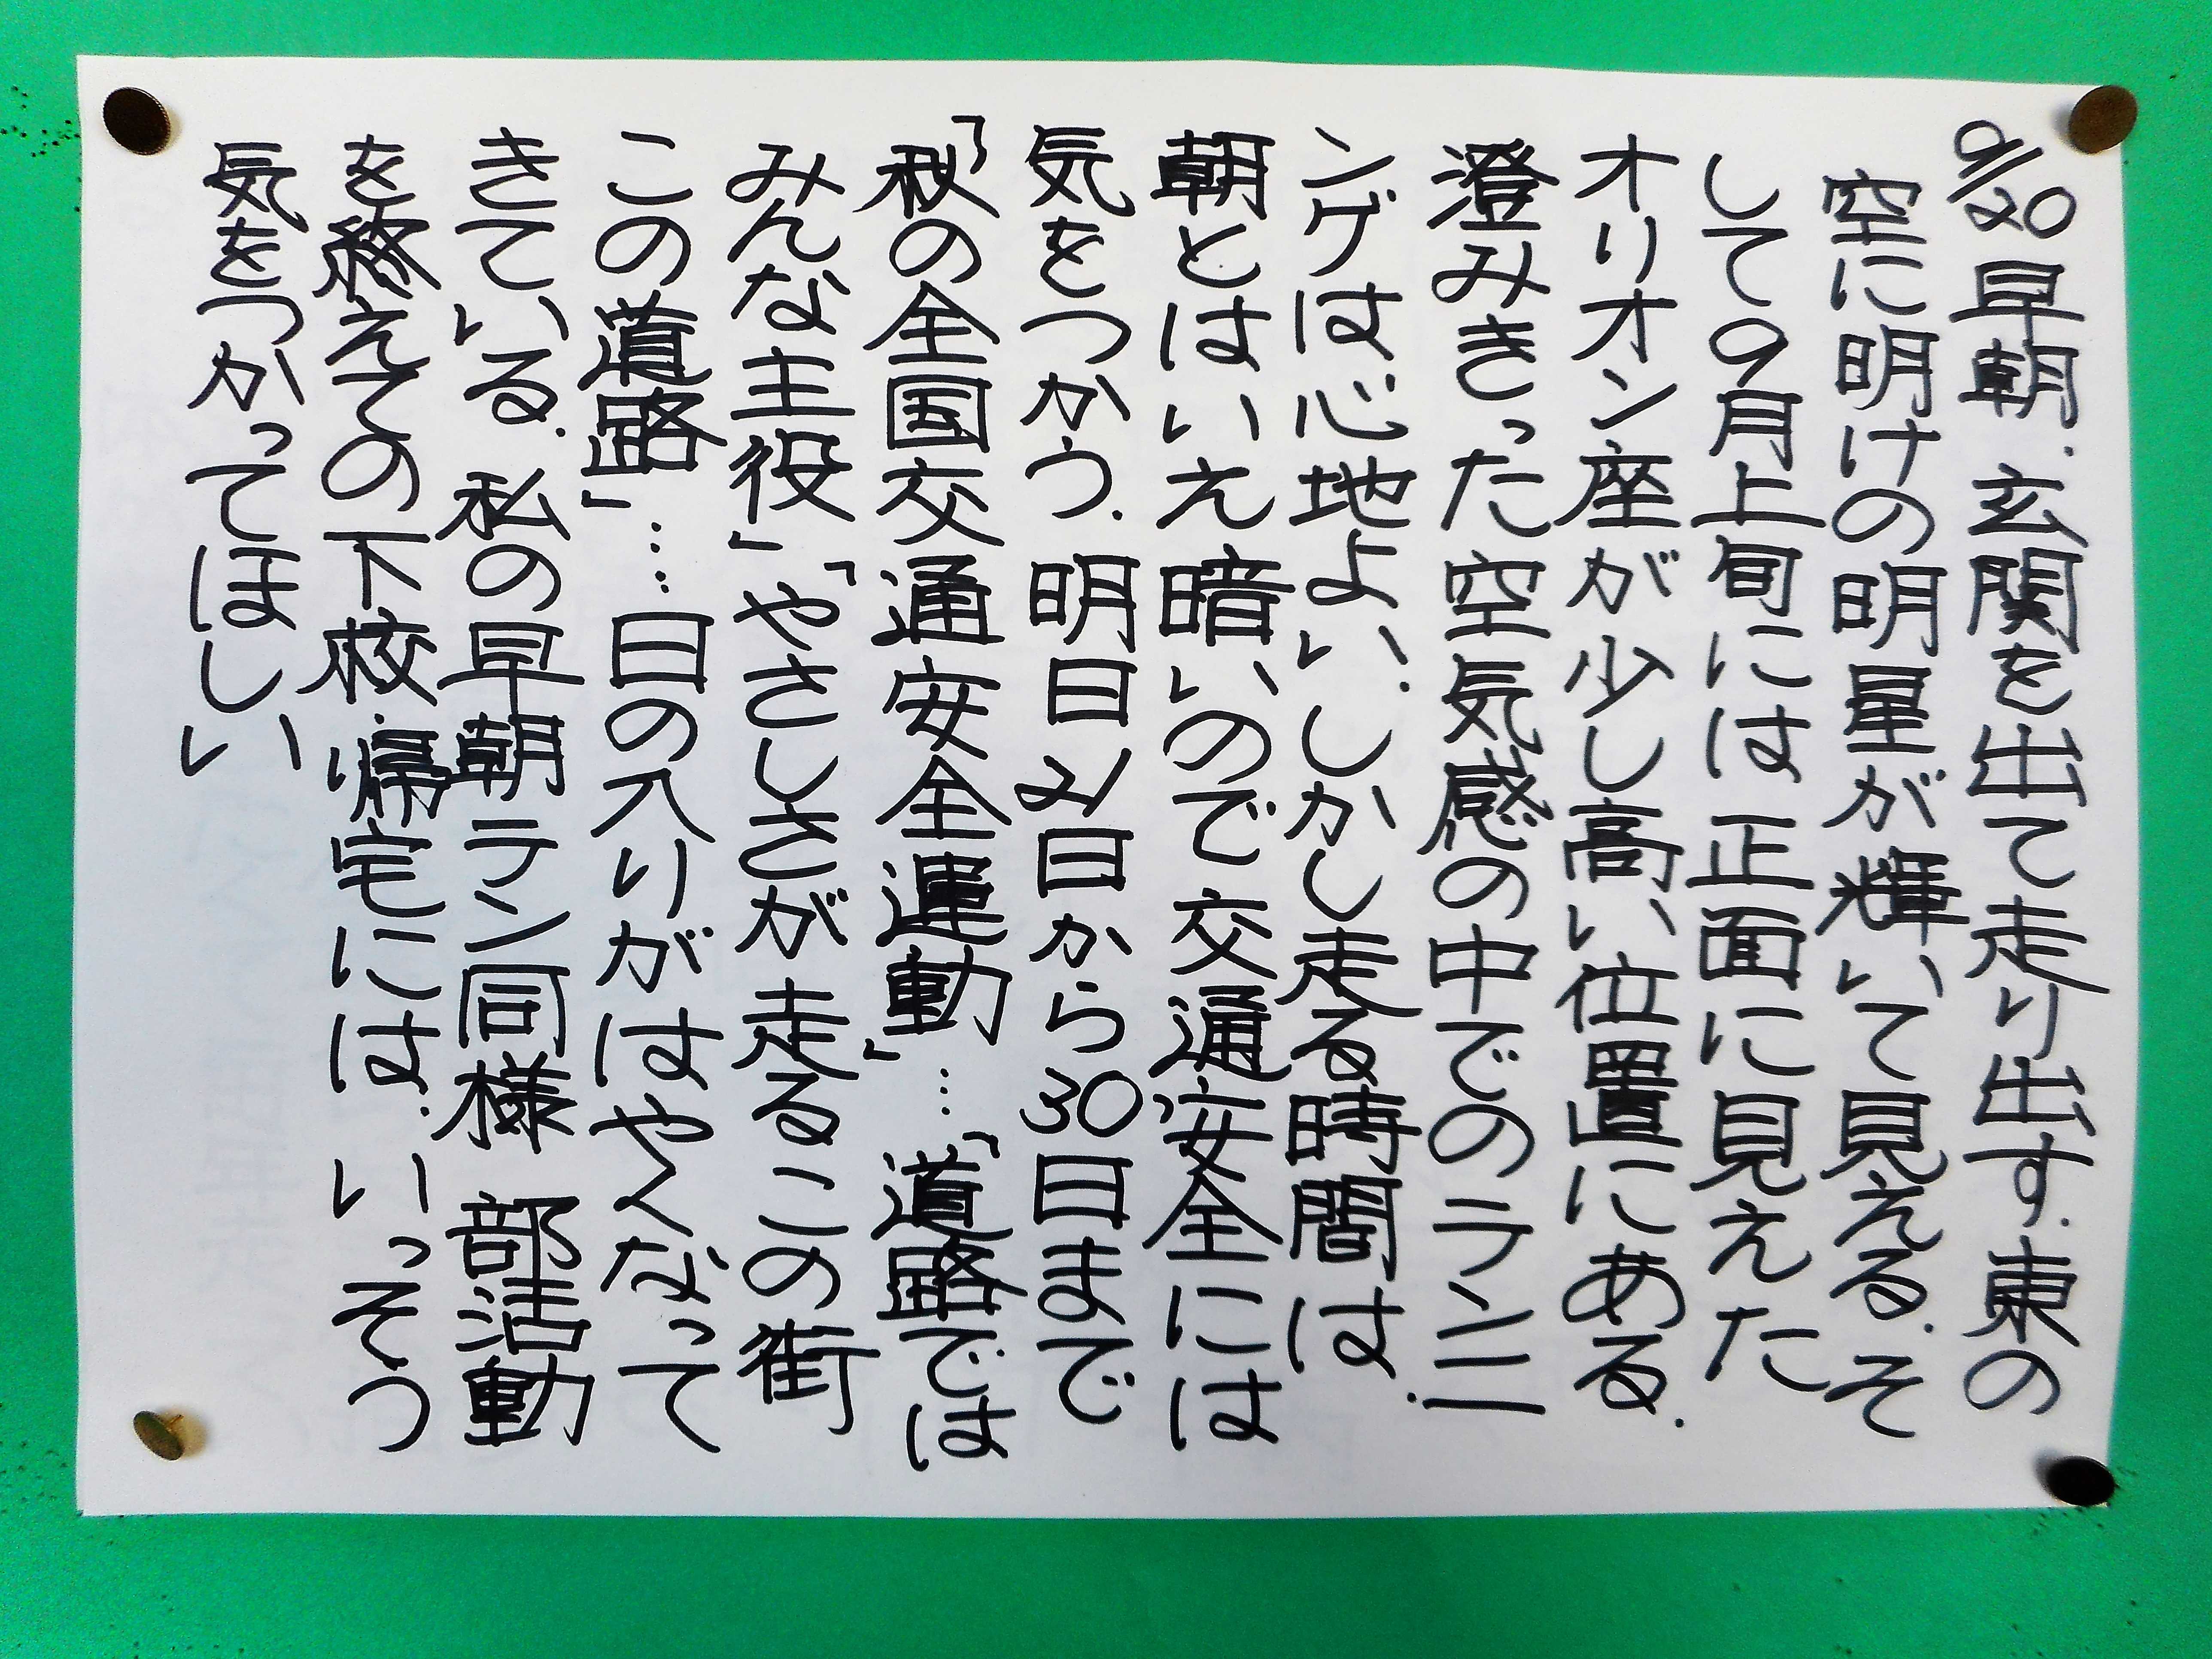 9/20早朝.玄関を出て走り出す.東の
空に明けの明星が輝いて見える.そ
して9月上旬には正面に見えた
オリオン座が少し高い位置にある.
澄みきった空気感の中でのランニ
ングは心地よい.しかし走る時間は.
朝とはいえ暗いので交通安全には
気をつかう.明日21日から30日まで
「秋の全国交通安全運動」…「道路では
みんな主役」「やさしさが走るこの街
この道路」……日の入りがはやくなって
きている.私の早朝ラン同様 部活動
を終えての下校.帰宅には.いっそう
気をつかってほしい